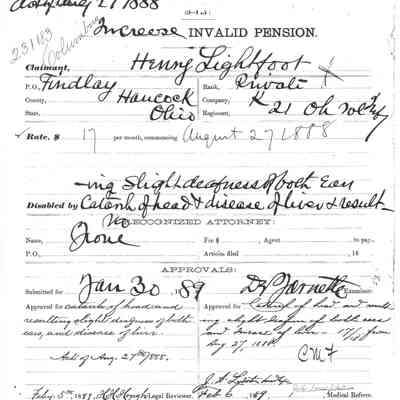 Aug 27 1888
(3-145.)
231183
Columbus
Increase INVALID PENSION.
Claimant, Henry Lightfoot
P.O., Findlay Rank, Private
County, Hancock Company, K
State, Ohio Regiment, 21 Oh Vol Inf
Rate, $ 17 per month, commencing August 27 1888
-ing slight deafness of both Ears
Disabled by Catarrh of head & disease of liver & result-
No
RECOGNIZED ATTORNEY:
Name, None Fee $ Agent to pay.
P.O., Articles filed , 18
APPROVALS:
Submitted for Jan 30 , 1889 Examiner.
Approved for catarrh of head and Approved for Catarrh of head and result-
resulting slight deafness of both ing slight deafness of both ears
ears, and disease of liver. and disease of liver - 17/18 from
Aug 27, 1888
Act of Aug. 27th 1888.
C M F
Feby. 5th, 1889, Legal Reviewer. Feb 6, 1889, Medical Referee.